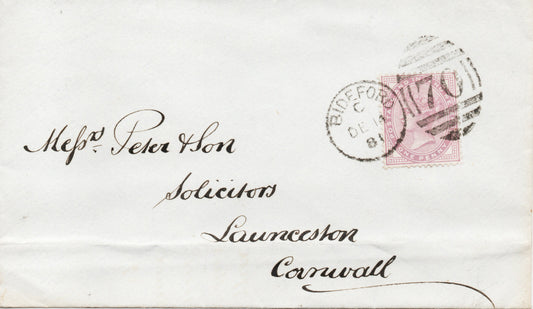 BIDEFORD
C
DE 14
81
70
ONE PENNY
Messrs. Peter & Son
Solicitors
Launceston
Cornwall